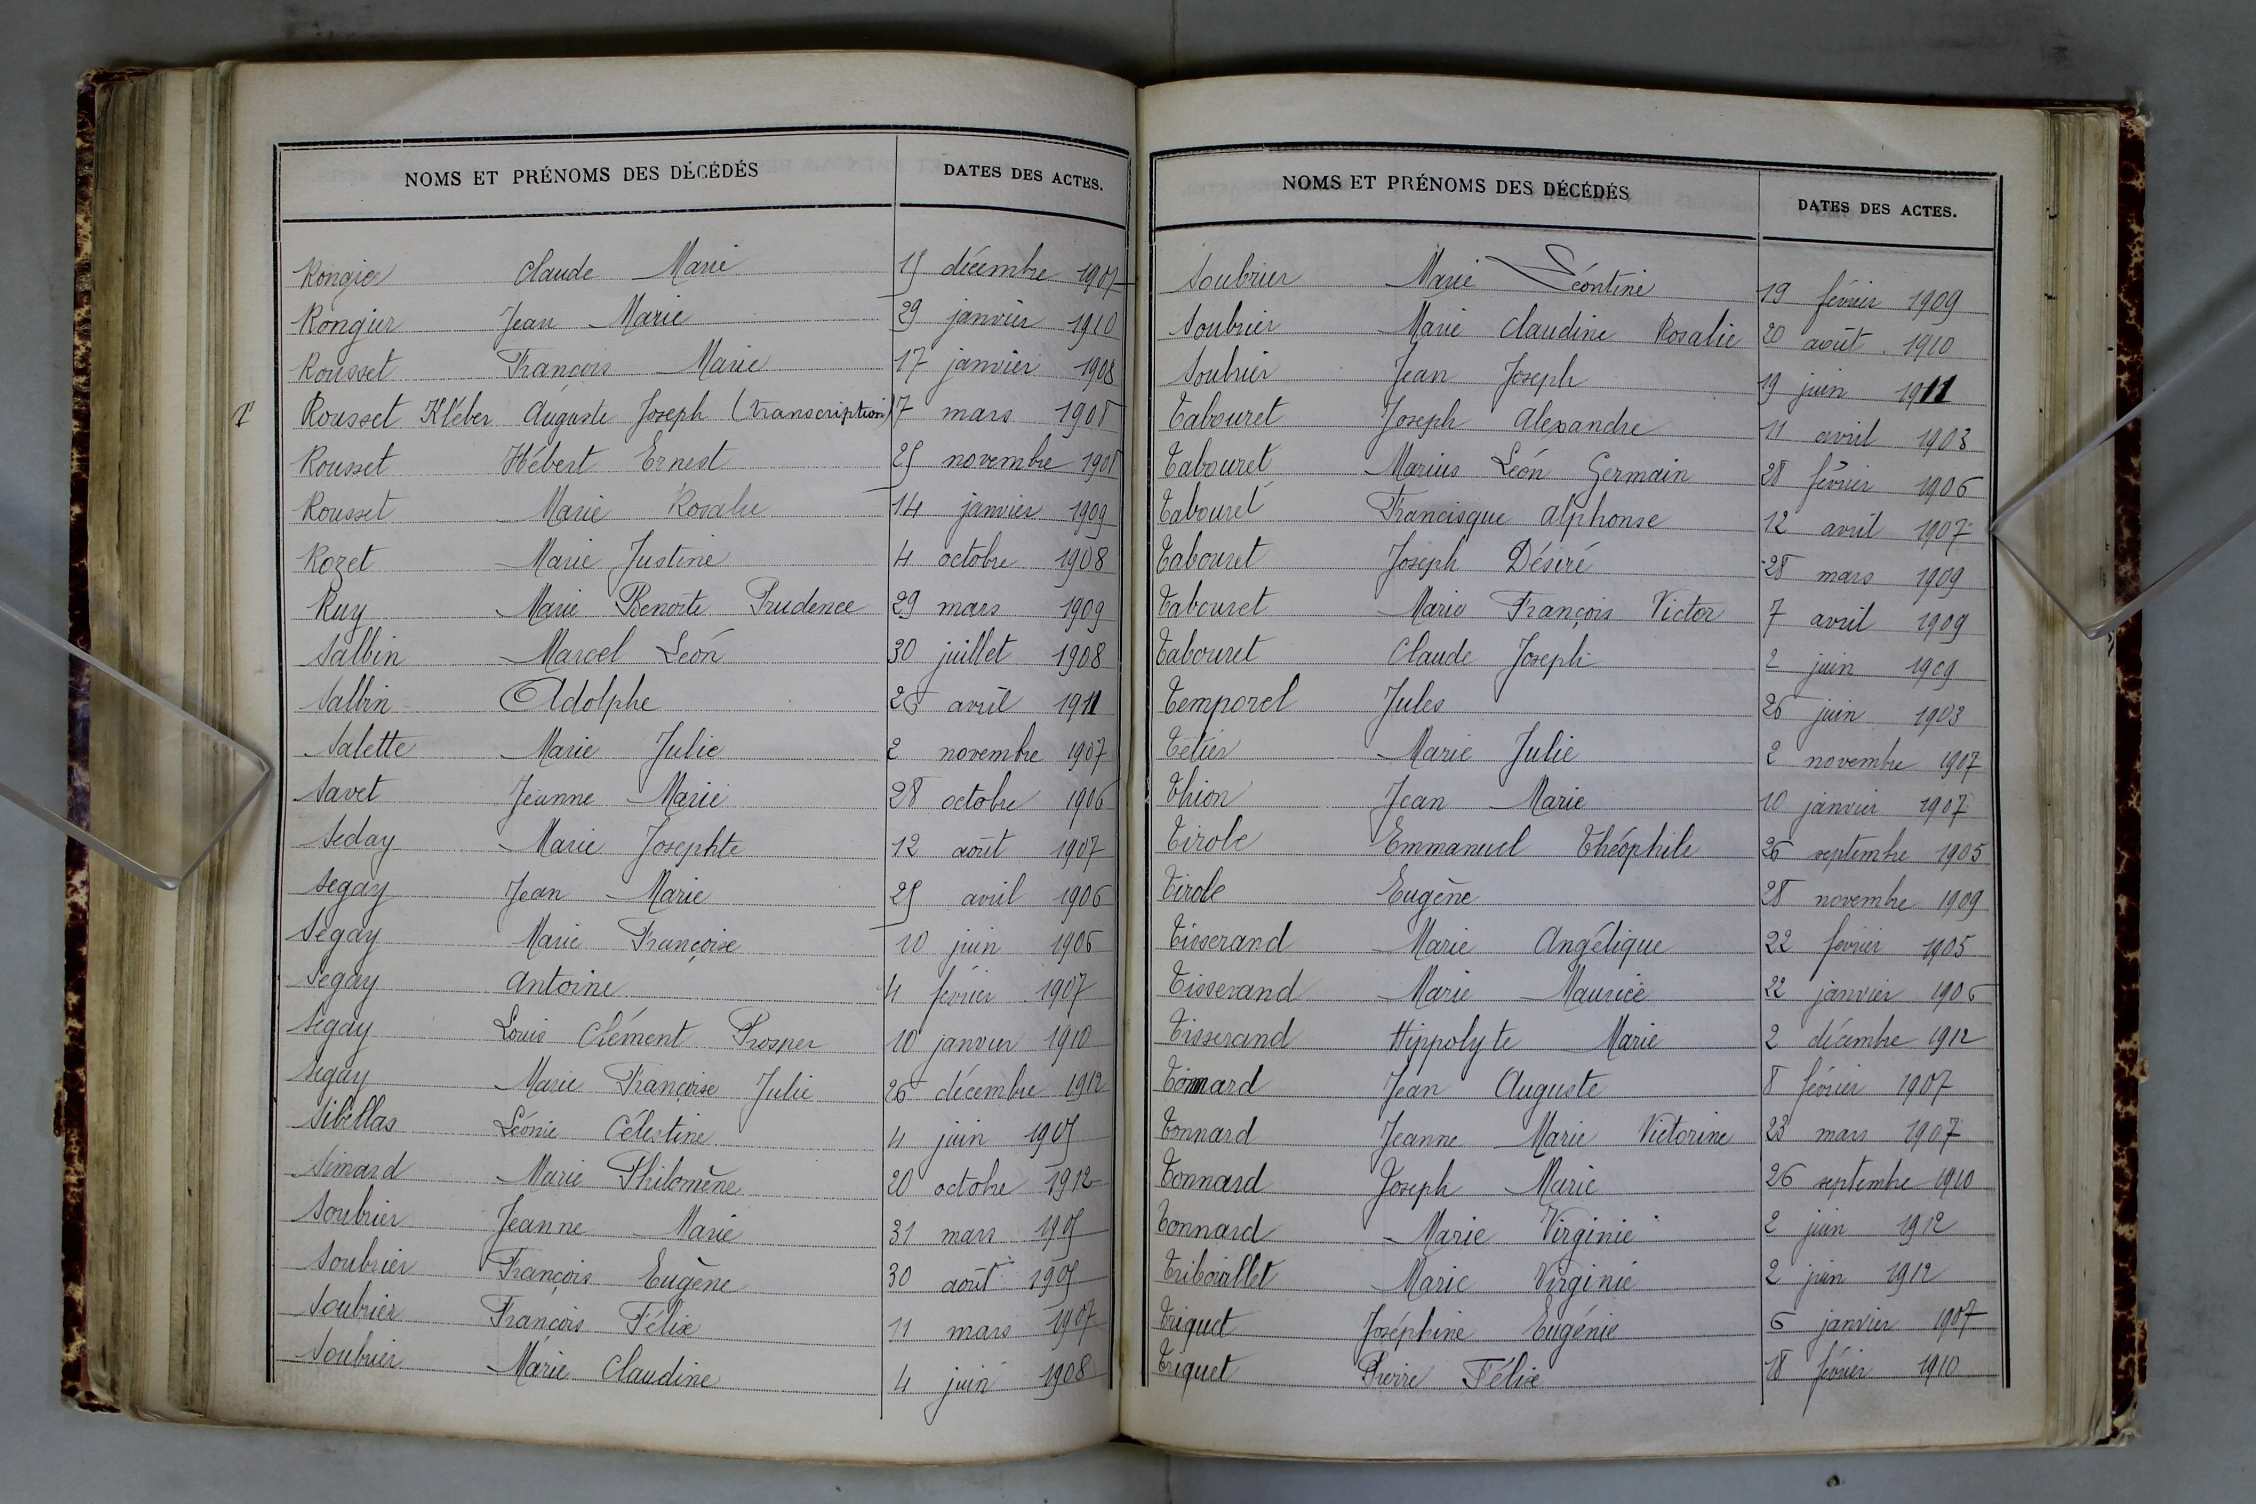 NOMS ET PRÉNOMS DES DÉCÉDÉS DATES DES ACTES.
Rongier Claude Marie 15 décembre 1907
Rongier Jean Marie 29 janvier 1910
Rousset François Marie 17 janvier 1908
T Rousset Kléber Auguste Joseph (transcription) 7 mars 1908
Rousset Hébert Ernest 25 novembre 1908
Rousset Marie Rosalie 14 janvier 1909
Rozet Marie Justine 4 octobre 1908
Ruy Marie Benoite Prudence 29 mars 1909
Salbin Marcel Léon 30 juillet 1908
Salbin Adolphe avril 1911
Salette Marie Julie 2 novembre 1907
Savet Jeanne Marie 28 octobre 1906
Seday Marie Josephte 12 août 1907
Segay Jean Marie 25 avril 1906
Segay Marie Françoise 10 juin 1906
Segay Antoine 4 février 1907
Segay Louis Clément Prosper 10 janvier 1910
Segay Marie Françoise Julie 26 décembre 1912
Sibellas Léonie Célestine 4 juin 1905
Simard Marie Philomène 20 octobre 1912
Soubrier Jeanne Marie 31 mars 1905
Soubrier François Eugène 30 août 1905
Soubrier François Félix 11 mars 1907
Soubrier Marie Claudine 4 juin 1908
NOMS ET PRÉNOMS DES DÉCÉDÉS DATES DES ACTES.
Soubrier Marie Léontine 19 février 1909
Soubrier Marie Claudine Rosalie 20 août 1910
Soubrier Jean Joseph 19 juin 1911
Tabouret Joseph Alexandre 11 avril 1903
Tabouret Marius Léon Germain 28 février 1906
Tabouret Francisque Alphonse 12 avril 1907
Tabouret Joseph Désiré 28 mars 1909
Tabouret Marie François Victor 7 avril 1909
Tabouret Claude Joseph 2 juin 1909
Temporel Jules 26 juin 1903
Tétier Marie Julie 2 novembre 1907
Thion Jean Marie 10 janvier 1907
Tirole Emmanuel Théophile 26 septembre 1905
Tirole Eugène 28 novembre 1909
Tisserand Marie Angélique 22 février 1905
Tisserand Marie Maurice 22 janvier 1906
Tisserand Hippolyte Marie 2 décembre 1912
Tonnard Jean Auguste 8 février 1907
Tonnard Jeanne Marie Victorine 23 mars 1907
Tonnard Joseph Marie 26 septembre 1910
Tonnard Marie Virginie 2 juin 1912
Tribouillet Marie Virginie 2 juin 1912
Triquet Joséphine Eugénie 6 janvier 1907
Triquet Pierre Félix 18 février 1910